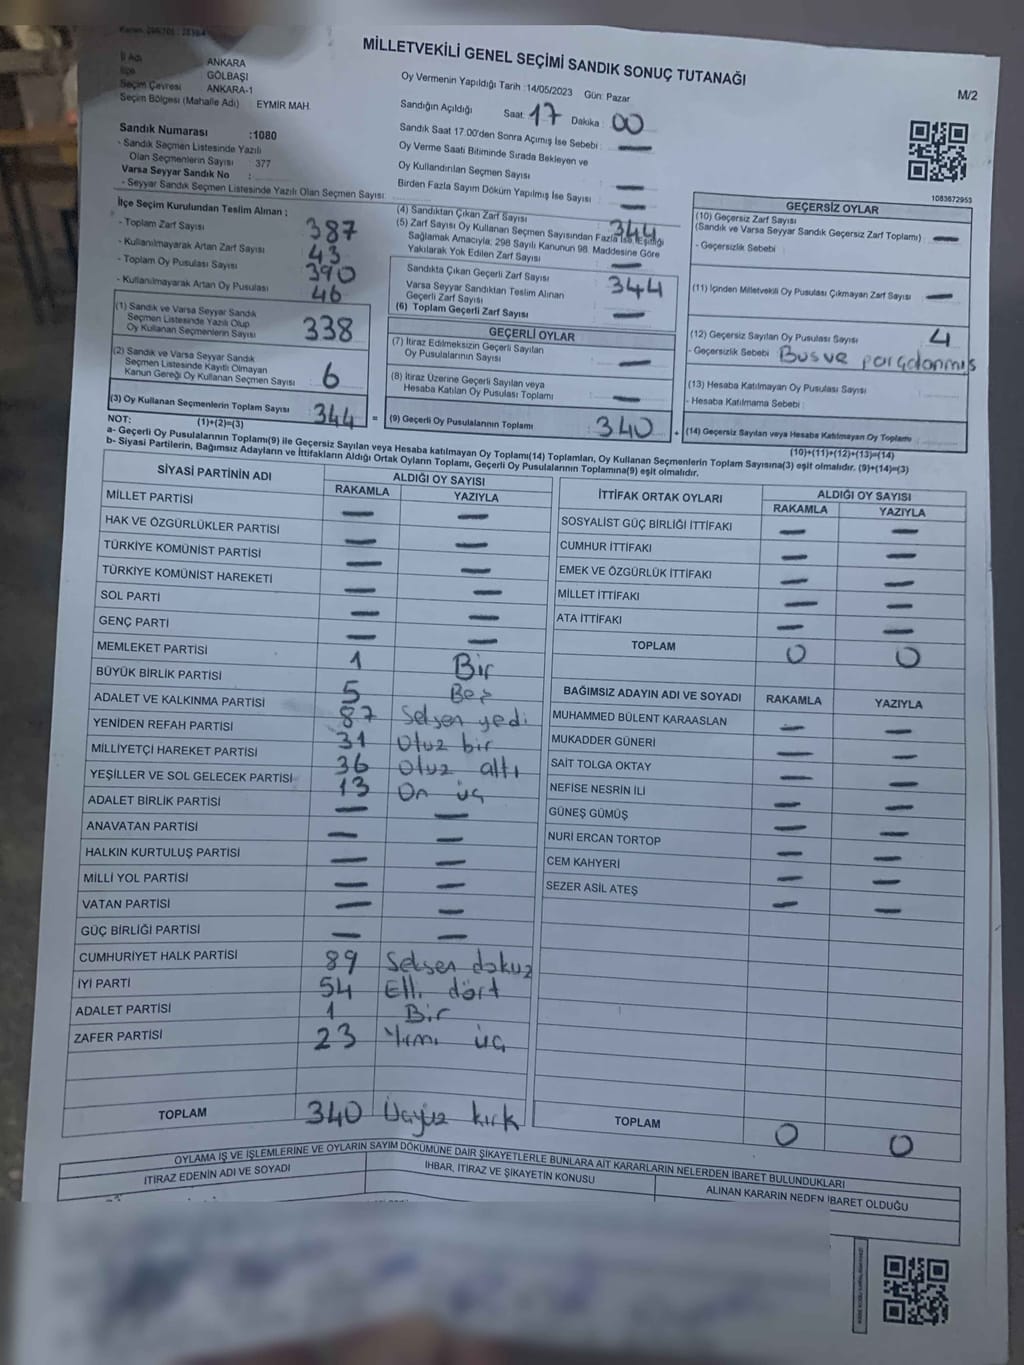 MİLLETVEKİLİ GENEL SEÇİMİ SANDIK SONUÇ TUTANAĞI
M/2
İl Adı ANKARA
İlçe GÖLBAŞI
Seçim Çevresi ANKARA-1
Seçim Bölgesi (Mahalle Adı) EYMİR MAH.
Oy Vermenin Yapıldığı Tarih :14/05/2023 Gün: Pazar
Sandığın Açıldığı Saat: 17 Dakika : 00
Sandık Saat 17.00'den Sonra Açılmış İse Sebebi : —
Oy Verme Saati Bitiminde Sırada Bekleyen ve
Oy Kullandırılan Seçmen Sayısı —
Birden Fazla Sayım Döküm Yapılmış İse Sayısı : —
Sandık Numarası :1080
- Sandık Seçmen Listesinde Yazılı
Olan Seçmenlerin Sayısı : 377
Varsa Seyyar Sandık No :
- Seyyar Sandık Seçmen Listesinde Yazılı Olan Seçmen Sayısı:
1083672953
İlçe Seçim Kurulundan Teslim Alınan ;
- Toplam Zarf Sayısı : 387
- Kullanılmayarak Artan Zarf Sayısı : 43
- Toplam Oy Pusulası Sayısı : 390
- Kullanılmayarak Artan Oy Pusulası : 46
(1) Sandık ve Varsa Seyyar Sandık
Seçmen Listesinde Yazılı Olup
Oy Kullanan Seçmenlerin Sayısı : 338
(2) Sandık ve Varsa Seyyar Sandık
Seçmen Listesinde Kayıtlı Olmayan
Kanun Gereği Oy Kullanan Seçmen Sayısı : 6
(3) Oy Kullanan Seçmenlerin Toplam Sayısı : 344 =
(1)+(2)=(3)
(4) Sandıktan Çıkan Zarf Sayısı : 344
(5) Zarf Sayısı Oy Kullanan Seçmen Sayısından Fazla İse, Eşitliği
Sağlamak Amacıyla; 298 Sayılı Kanunun 98. Maddesine Göre
Yakılarak Yok Edilen Zarf Sayısı : —
Sandıkta Çıkan Geçerli Zarf Sayısı : 344
Varsa Seyyar Sandıktan Teslim Alınan
Geçerli Zarf Sayısı
(6) Toplam Geçerli Zarf Sayısı : —
GEÇERLİ OYLAR
(7) İtiraz Edilmeksizin Geçerli Sayılan
Oy Pusulalarının Sayısı : —
(8) İtiraz Üzerine Geçerli Sayılan veya
Hesaba Katılan Oy Pusulası Toplamı : —
(9) Geçerli Oy Pusulalarının Toplamı : 340 +
GEÇERSİZ OYLAR
(10) Geçersiz Zarf Sayısı
(Sandık ve Varsa Seyyar Sandık Geçersiz Zarf Toplamı) : —
- Geçersizlik Sebebi :
(11) İçinden Milletvekili Oy Pusulası Çıkmayan Zarf Sayısı : —
(12) Geçersiz Sayılan Oy Pusulası Sayısı : 4
- Geçersizlik Sebebi :
(13) Hesaba Katılmayan Oy Pusulası Sayısı :
- Hesaba Katılmama Sebebi :
(14) Geçersiz Sayılan veya Hesaba Katılmayan Oy Toplamı :
(10)+(11)+(12)+(13)=(14)
NOT:
a- Geçerli Oy Pusulalarının Toplamı(9) ile Geçersiz Sayılan veya Hesaba katılmayan Oy Toplamı(14) Toplamları, Oy Kullanan Seçmenlerin Toplam Sayısına(3) eşit olmalıdır. (9)+(14)=(3)
b- Siyasi Partilerin, Bağımsız Adayların ve İttifakların Aldığı Ortak Oyların Toplamı, Geçerli Oy Pusulalarının Toplamına(9) eşit olmalıdır.
SİYASİ PARTİNİN ADI ALDIĞI OY SAYISI
RAKAMLA YAZIYLA
MİLLET PARTİSİ — —
HAK VE ÖZGÜRLÜKLER PARTİSİ — —
TÜRKİYE KOMÜNİST PARTİSİ — —
TÜRKİYE KOMÜNİST HAREKETİ — —
SOL PARTİ — —
GENÇ PARTİ — —
MEMLEKET PARTİSİ 1 Bir
BÜYÜK BİRLİK PARTİSİ 5 Beş
ADALET VE KALKINMA PARTİSİ 87 Seksen yedi
YENİDEN REFAH PARTİSİ 31 Otuz bir
MİLLİYETÇİ HAREKET PARTİSİ 36 Otuz altı
YEŞİLLER VE SOL GELECEK PARTİSİ 13 On üç
ADALET BİRLİK PARTİSİ — —
ANAVATAN PARTİSİ — —
HALKIN KURTULUŞ PARTİSİ — —
MİLLİ YOL PARTİSİ — —
VATAN PARTİSİ — —
GÜÇ BİRLİĞİ PARTİSİ — —
CUMHURİYET HALK PARTİSİ 89 Seksen dokuz
İYİ PARTİ 54 Elli dört
ADALET PARTİSİ 1 Bir
ZAFER PARTİSİ 23 Yirmi üç
TOPLAM 340 Üçyüz kırk
İTTİFAK ORTAK OYLARI ALDIĞI OY SAYISI
RAKAMLA YAZIYLA
SOSYALİST GÜÇ BİRLİĞİ İTTİFAKI — —
CUMHUR İTTİFAKI — —
EMEK VE ÖZGÜRLÜK İTTİFAKI — —
MİLLET İTTİFAKI — —
ATA İTTİFAKI — —
TOPLAM 0 0
BAĞIMSIZ ADAYIN ADI VE SOYADI RAKAMLA YAZIYLA
MUHAMMED BÜLENT KARAASLAN — —
MUKADDER GÜNERİ — —
SAİT TOLGA OKTAY — —
NEFİSE NESRİN İLİ — —
GÜNEŞ GÜMÜŞ — —
NURİ ERCAN TORTOP — —
CEM KAHYERİ — —
SEZER ASİL ATEŞ — —
TOPLAM 0 0
OYLAMA İŞ VE İŞLEMLERİNE VE OYLARIN SAYIM DÖKÜMÜNE DAİR ŞİKAYETLERLE BUNLARA AİT KARARLARIN NELERDEN İBARET BULUNDUKLARI
İTİRAZ EDENİN ADI VE SOYADI
İHBAR, İTİRAZ VE ŞİKAYETİN KONUSU
ALINAN KARARIN NEDEN İBARET OLDUĞU